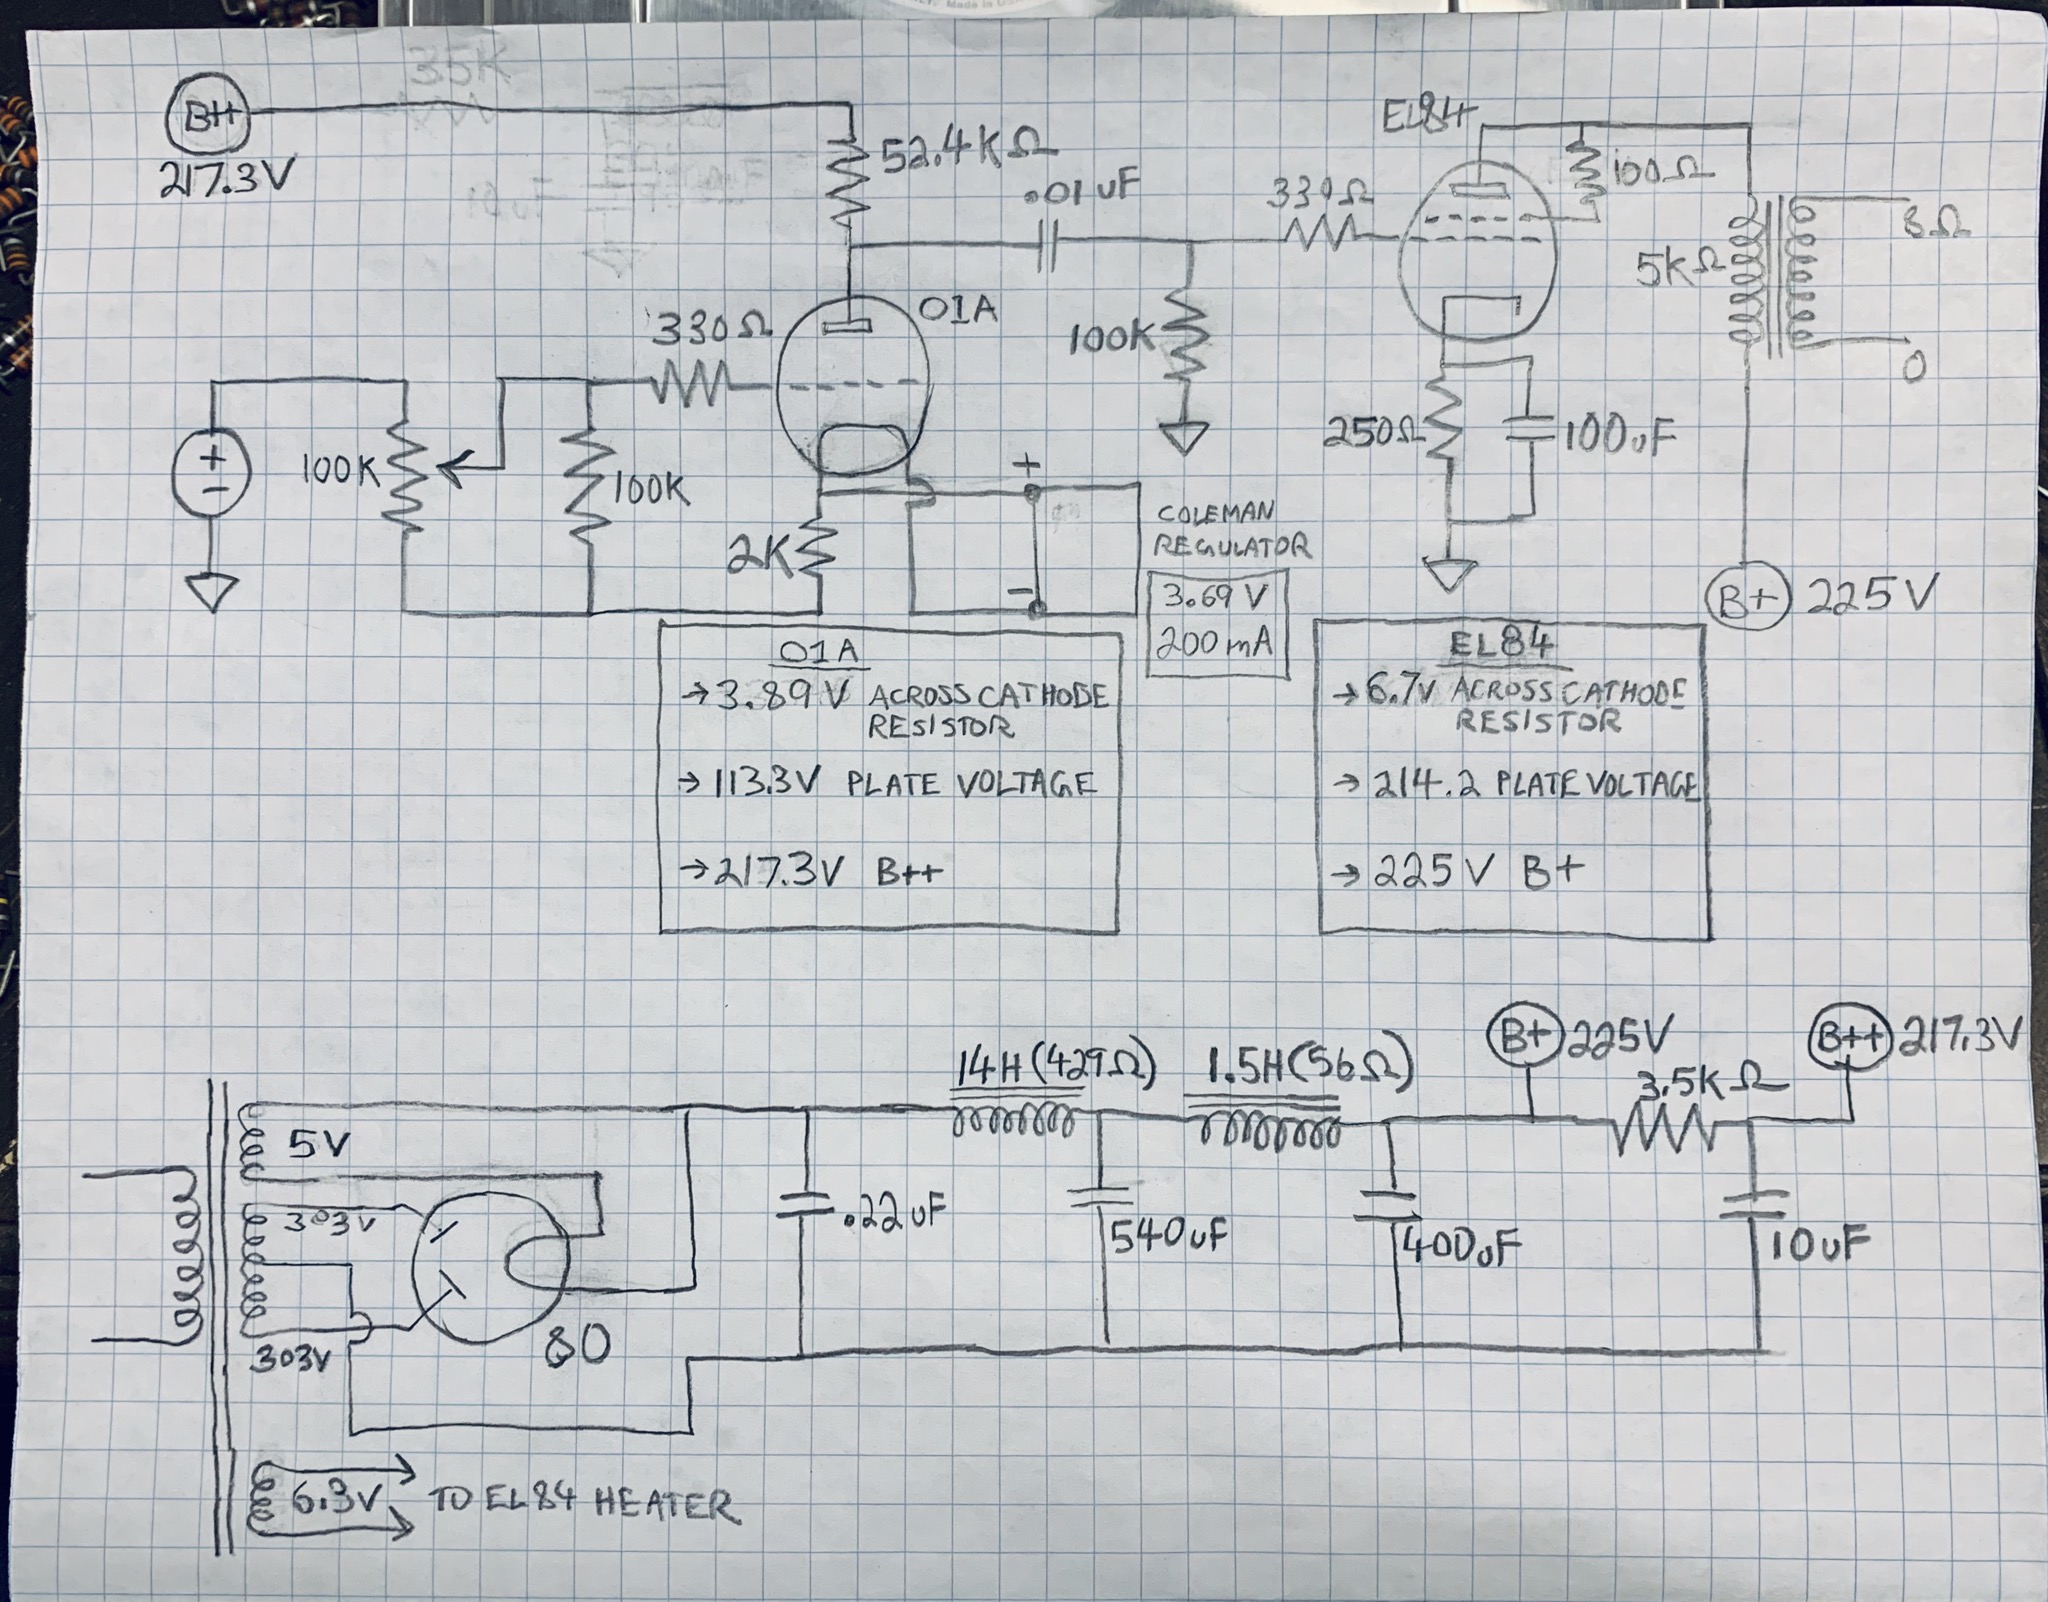 Made in USA
35K
B++
217.3V
52.4KΩ
.01uF
330Ω
01A
100K
+
-
100K
100K
2K
+
-
COLEMAN
REGULATOR
3.69V
200mA
100K
330Ω
EL84
100Ω
5kΩ
8Ω
0
250Ω
100uF
B+ 225V
01A
→3.89V ACROSS CATHODE
RESISTOR
→113.3V PLATE VOLTAGE
→217.3V B++
EL84
→6.7V ACROSS CATHODE
RESISTOR
→214.2 PLATE VOLTAGE
→225V B+
14H(429Ω)
1.5H(56Ω)
B+ 225V
3.5KΩ
B++ 217.3V
5V
303V
303V
80
.22uF
540uF
400uF
10uF
6.3V TO EL84 HEATER